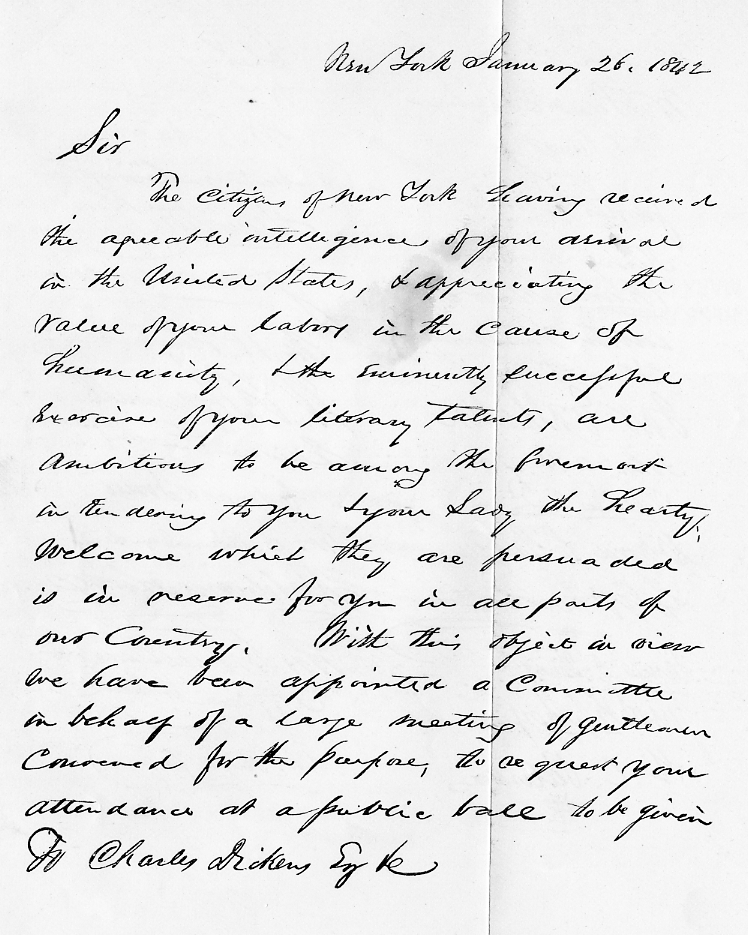 New York January 26. 1842
Sir
The Citizens of New York having received
the agreeable intelligence of your arrival
in the United States, & appreciating the
value of your labors in the cause of
humanity, & the eminently successful
Exercise of your literary talents, are
ambitious to be among the foremost
in tendering to you & your Lady the hearty
Welcome which they are persuaded
is in reserve for you in all parts of
our Country. With this object in view
we have been appointed a Committee
in behalf of a large meeting of gentlemen
Convened for the purpose, to request your
attendance at a public ball to be given
To Charles Dickens Esq &c